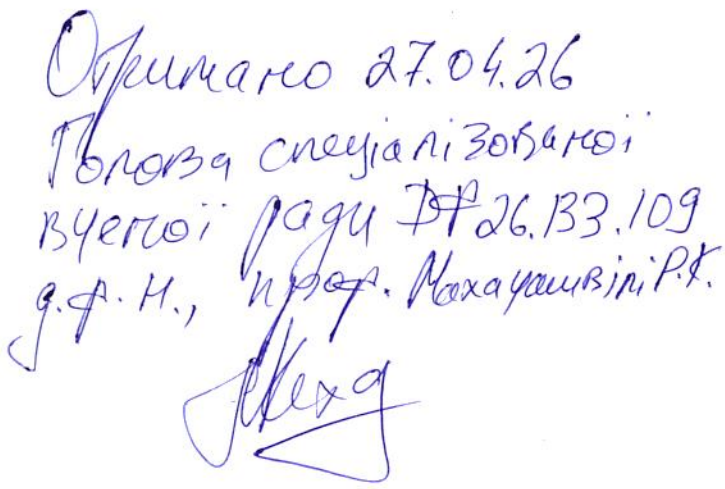 Отримано 27.04.26
Голова спеціалізованої
вченої ради ДФ 26.133.109
д.ф.н., проф. Махачашвілі Р.К.